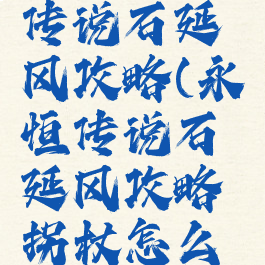 传说石延
风攻略(永
恒传说石
延风攻略
拐杖怎么